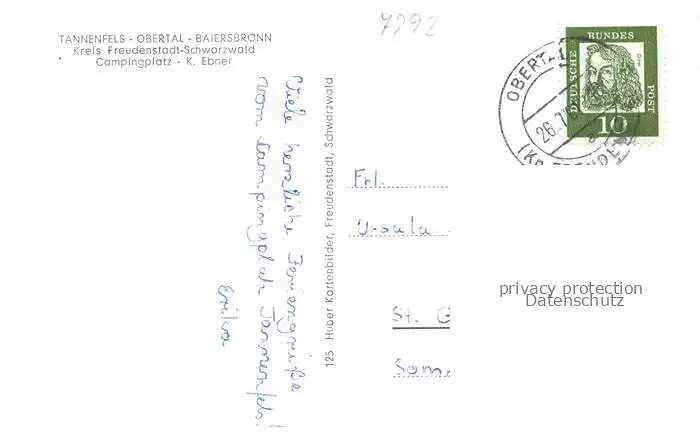 7292
TANNENFELS - OBERTAL - BAIERSBRONN
Kreis Freudenstadt-Schwarzwald
Campingplatz - K. Ebner
Viele herzliche Feriengrüße
vom Campingplatz Tannenfels!
Erika
125 Huber Kartenbilder, Freudenstadt, Schwarzwald
DEUTSCHE BUNDES POST
Dürer
10
OBERTAL
26.7
a
Frl.
Ursula
St. G
Som
privacy protection
Datenschutz